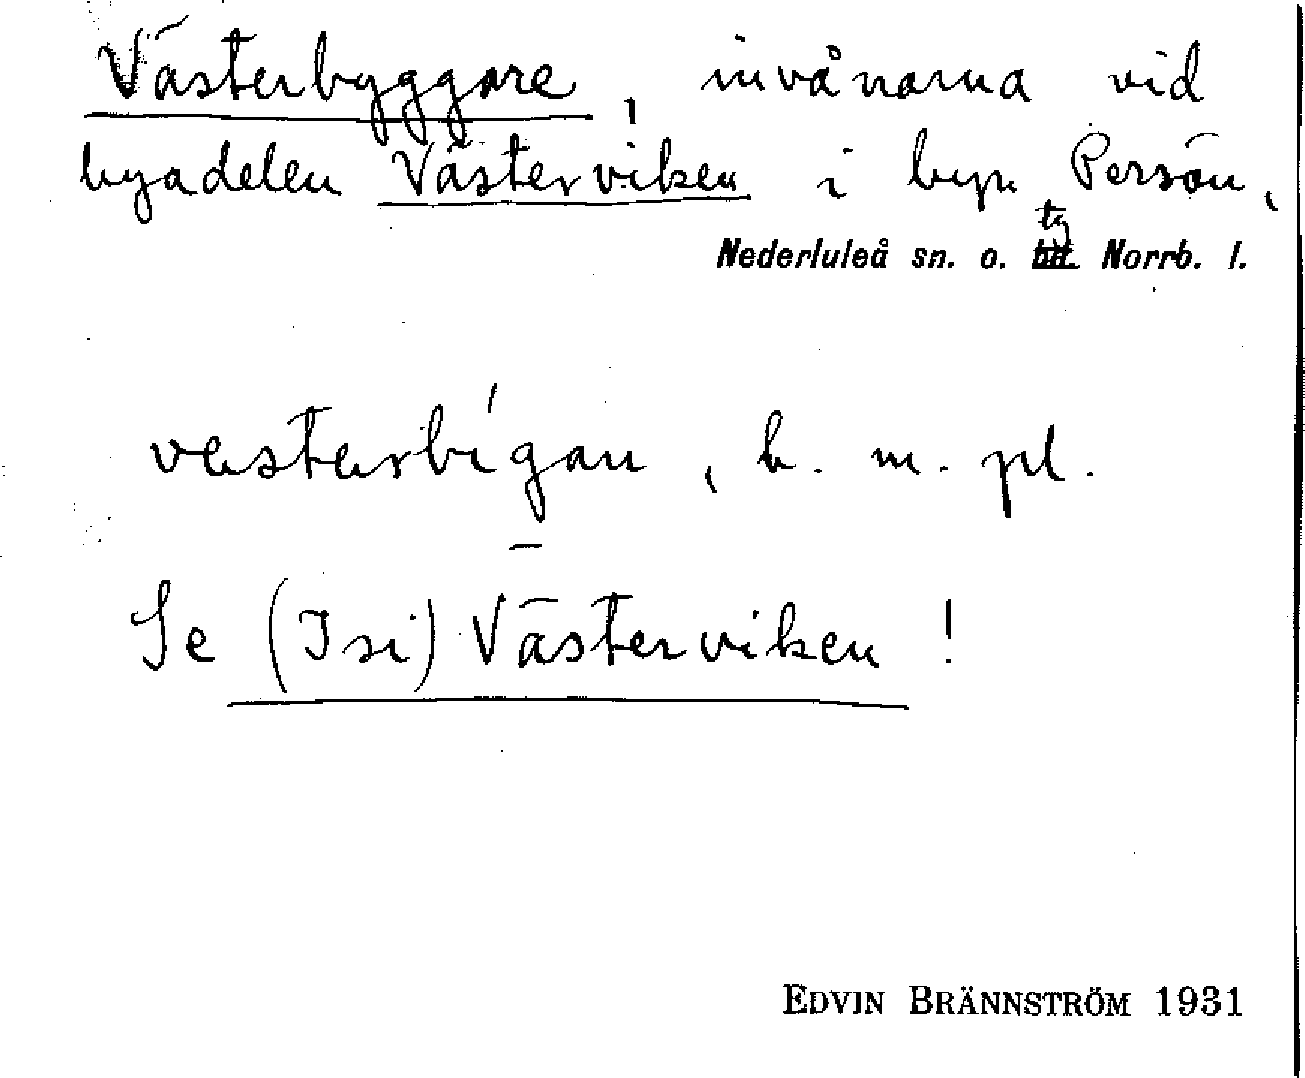 Västerbyggare, invånarna vid
byadelen Västerviken i byn Persön,
Nederluleå sn. o. tg Norrb. l.
vestarbigan, b. m. pl.
Se (Isi) Västerviken!
EDVIN BRÄNNSTRÖM 1931